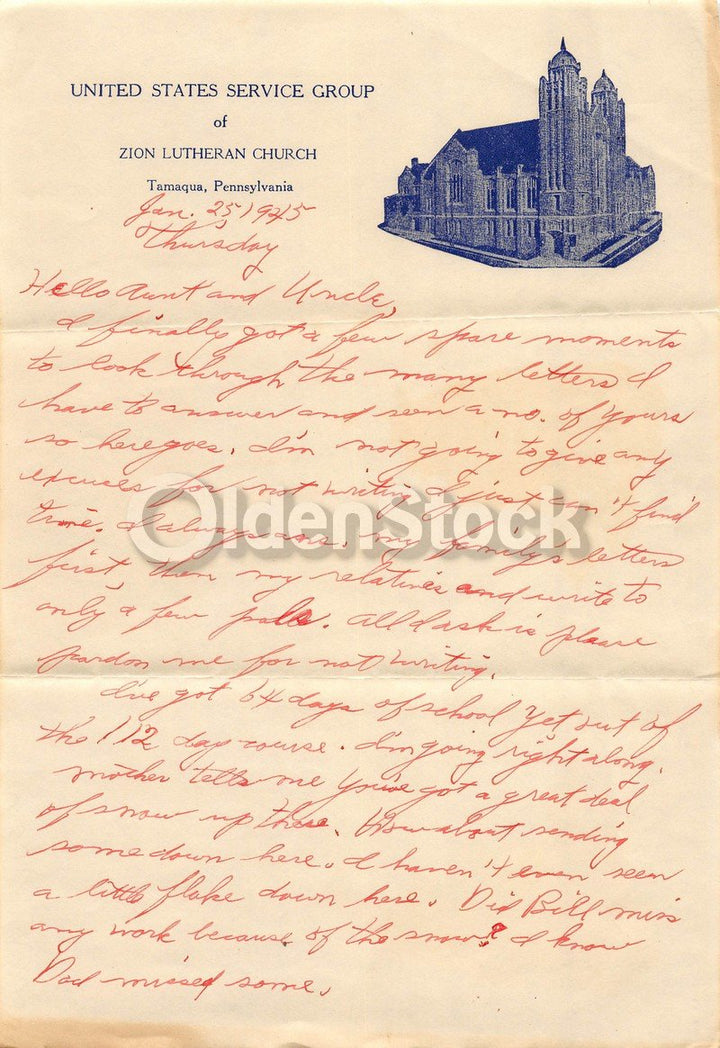 UNITED STATES SERVICE GROUP
of
ZION LUTHERAN CHURCH
Tamaqua, Pennsylvania
Jan. 25 1945
Thursday
Hello Aunt and Uncle,
I finally got a few spare moments
to look through the many letters I
have to answer and seen a no. of yours
so here goes. I'm not going to give any
excuses for not writing I just can't find
time. I always ans. my family's letters
first, then my relatives and write to
only a few pals. All I ask is please
pardon me for not writing.
I've got 64 days of school yet out of
the 112 day course. I'm going right along.
Mother tells me you've got a great deal
of snow up there. How about sending
some down here. I haven't even seen
a little flake down here. Did Bill miss
any work because of the snow? I know
Dad missed some.
OldenStock